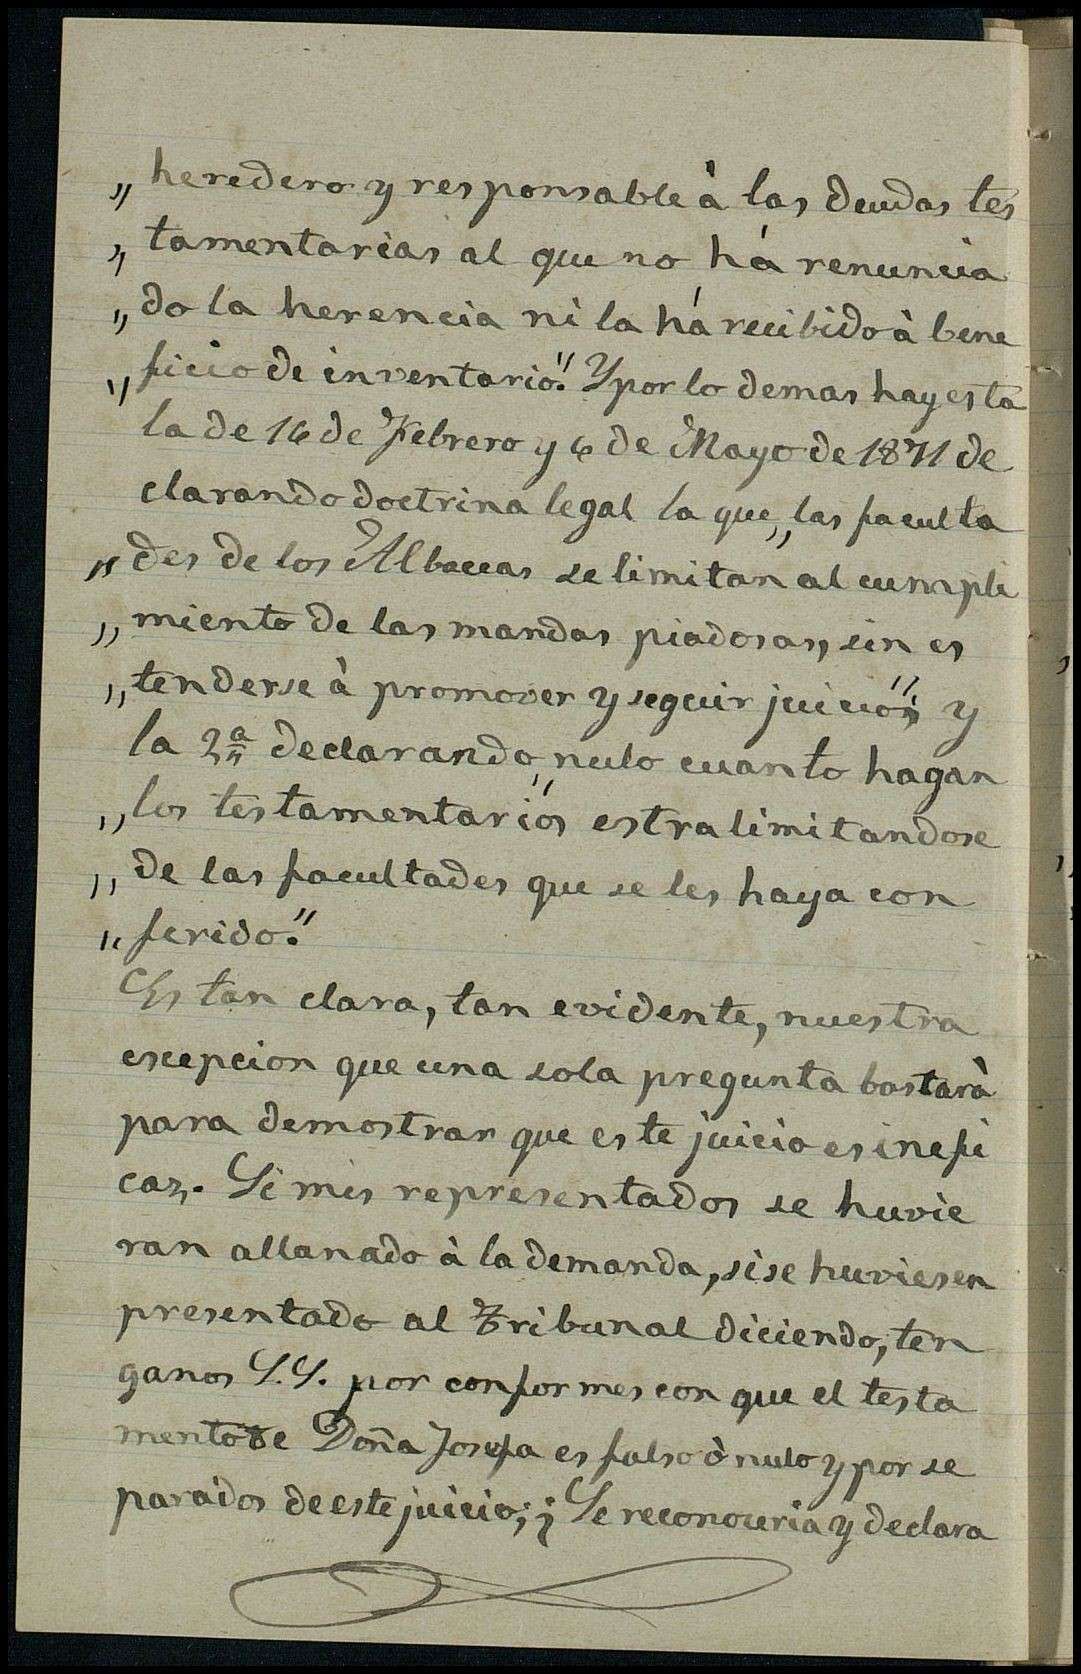 „ heredero y responsable à las deudas tes
„ tamentarias al que no há renuncia
„ do la herencia ni la há recibido à bene
„ ficio de inventario." Y por lo demas hay esta
la de 16 de Febrero y 6 de Mayo de 1871 de
clarando doctrina legal la que „ las faculta
„ des de los Albaceas se limitan al cumpli
„ miento de las mandas piadosas, sin es
„ tenderse à promover y seguir juicios"; y
la 2ª declarando „ nulo cuanto hagan
„ los testamentarios estralimitandose
„ de las facultades que se les haya con
„ ferido."
Es tan clara, tan evidente, nuestra
escepcion que una sola pregunta bastarà
para demostrar que este juicio es inefi
caz. Si mis representados se huvie
ran allanado à la demanda, si se huviesen
presentado al Tribunal diciendo, ten
ganos S.S. por conformes con que el testa
mento de Doña Josefa es falso ò nulo y por se
parados de este juicio; ¿Se reconoceria y declara